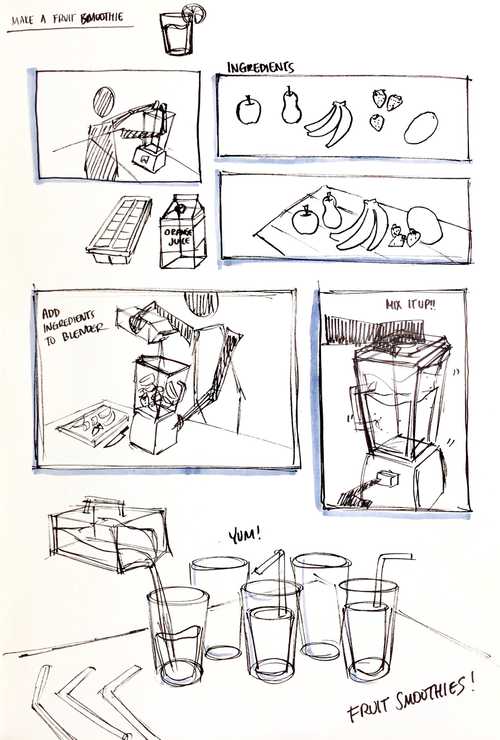 MAKE A FRUIT SMOOTHIE
INGREDIENTS
ORANGE
JUICE
ADD
INGREDIENTS
TO BLENDER
MIX IT UP!!
YUM!
FRUIT SMOOTHIES!